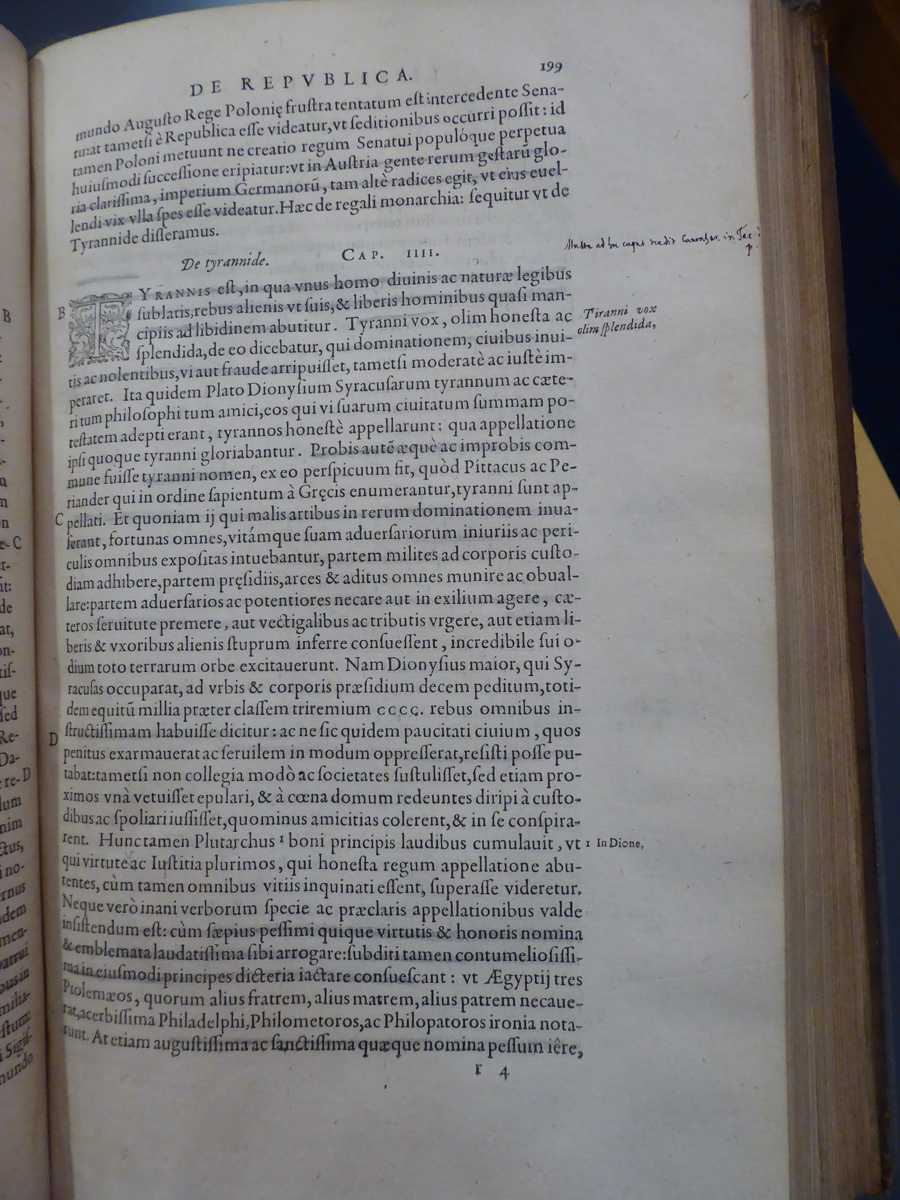 DE REPVBLICA.
199
mundo Augusto Rege Polonię frustra tentatum est intercedente Sena-
tu:at tametsi è Republica esse videatur,vt seditionibus occurri possit: id
tamen Poloni metuunt ne creatio regum Senatui populóque perpetua
huiusmodi successione eripiatur:vt in Austria gente rerum gestarũ glo-
ria clarissima, imperium Germanorũ, tam altè radices egit, vt eius euel-
lendi vix vlla spes esse videatur. Hæc de regali monarchia: sequitur vt de
Tyrannide disseramus.
De tyrannide. CAP. IIII.
B
TYRANNIS est, in qua vnus homo diuinis ac naturæ legibus
sublatis,rebus alienis vt suis,& liberis hominibus quasi man-
cipiis ad libidinem abutitur. Tyranni vox, olim honesta ac
splendida,de eo dicebatur, qui dominationem, ciuibus inui-
tis ac nolentibus,vi aut fraude arripuisset, tametsi moderatè ac iustè im-
peraret. Ita quidem Plato Dionysium Syracusarum tyrannum ac cæte-
ri tum philosophi tum amici,eos qui vi suarum ciuitatum summam po-
testatem adepti erant, tyrannos honestè appellarunt: qua appellatione
ipsi quoque tyranni gloriabantur. Probis autẽ æquè ac improbis com-
mune fuisse tyranni nomen, ex eo perspicuum fit, quòd Pittacus ac Pe-
riander qui in ordine sapientum à Gręcis enumerantur,tyranni sunt ap-
C
pellati. Et quoniam ij qui malis artibus in rerum dominationem inua-
serant, fortunas omnes,vitámque suam aduersariorum iniuriis ac peri-
culis omnibus expositas intuebantur, partem milites ad corporis custo-
diam adhibere,partem pręsidiis,arces & aditus omnes munire ac obual-
lare:partem aduersarios ac potentiores necare aut in exilium agere, cæ-
teros seruitute premere, aut vectigalibus ac tributis vrgere, aut etiam li-
beris & vxoribus alienis stuprum inferre consuessent, incredibile sui o-
dium toto terrarum orbe excitauerunt. Nam Dionysius maior, qui Sy-
racusas occuparat, ad vrbis & corporis præsidium decem peditum,toti-
dem equitũ millia præter classem triremium CCCC. rebus omnibus in-
D
structissimam habuisse dicitur: ac ne sic quidem paucitati ciuium, quos
penitus exarmauerat ac seruilem in modum oppresserat,resisti posse pu-
tabat:tametsi non collegia modò ac societates sustulisset,sed etiam pro-
ximos vnà vetuisset epulari, & à cœna domum redeuntes diripi à custo-
dibus ac spoliari iussisset,quominus amicitias colerent,& in se conspira-
rent. Hunc tamen Plutarchus 1 boni principis laudibus cumulauit, vt
qui virtute ac Iustitia plurimos, qui honesta regum appellatione abu-
tentes, cùm tamen omnibus vitiis inquinati essent, superasse videretur.
Neque verò inani verborum specie ac præclaris appellationibus valde
insistendum est: cùm sæpius pessimi quique virtutis & honoris nomina
& emblemata laudatissima sibi arrogare:subditi tamen contumeliosissi-
ma in eiusmodi principes dicteria iactare consuescant: vt Ægyptij tres
Ptolemæos, quorum alius fratrem, alius matrem, alius patrem necaue-
rat,acerbissima Philadelphi,Philometoros,ac Philopatoros ironia nota-
runt. At etiam augustissima ac sanctissima quæque nomina pessum iêre,
r 4
Tiranni vox
olim splendida,
1 In Dione,